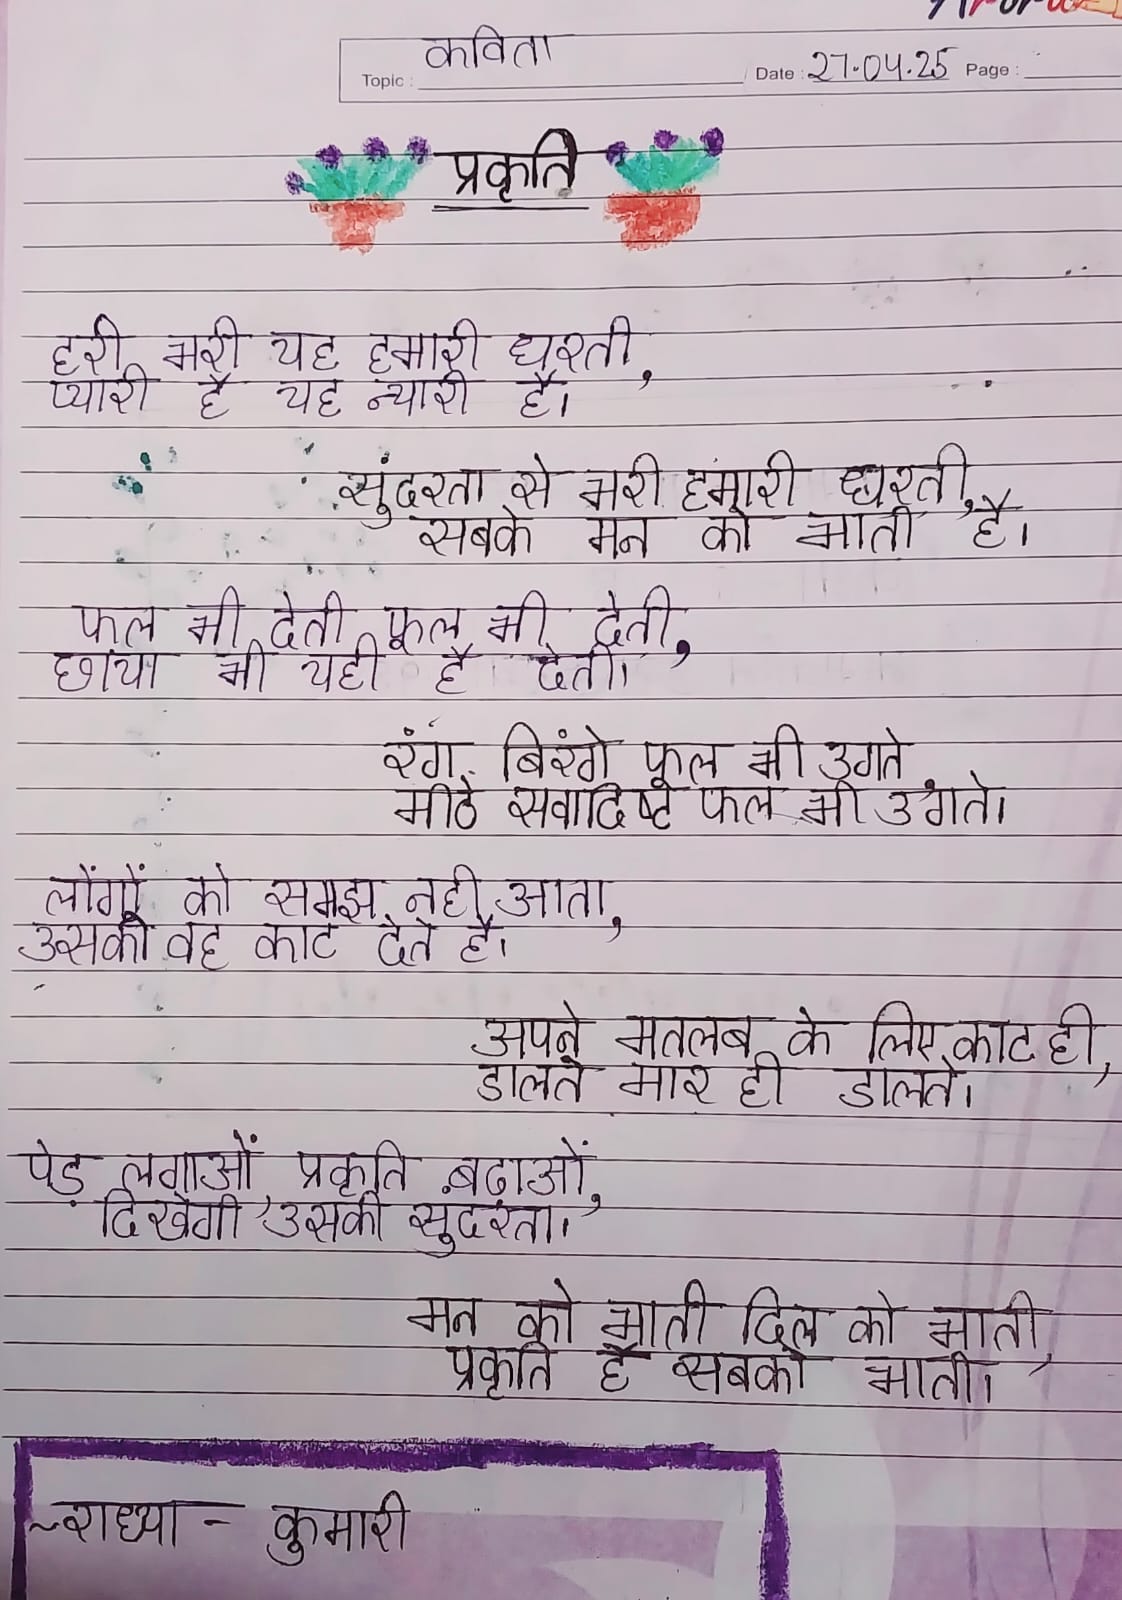 कविता
Topic :
Date : 27.04.25 Page :
प्रकृति
हरी भरी यह हमारी धरती,
प्यारी है यह न्यारी है।
सुंदरता से भरी हमारी धरती,
सबके मन को भाती है।
फल भी देती फूल भी देती,
छाया भी यही है देती।
रंग बिरंगे फूल भी उगते
मीठे सवादिष्ट फल भी उगते।
लोंगों को समझ नही आता,
उसको वह काट देते है।
अपने मतलब के लिए काट ही,
डालते मार ही डालते।
पेड़ लगाओं प्रकृति बढाओं,
दिखेगी उसकी सुदंरता।
मन को भाती दिल को भाती,
प्रकृति है सबको भाती।
~राध्या - कुमारी